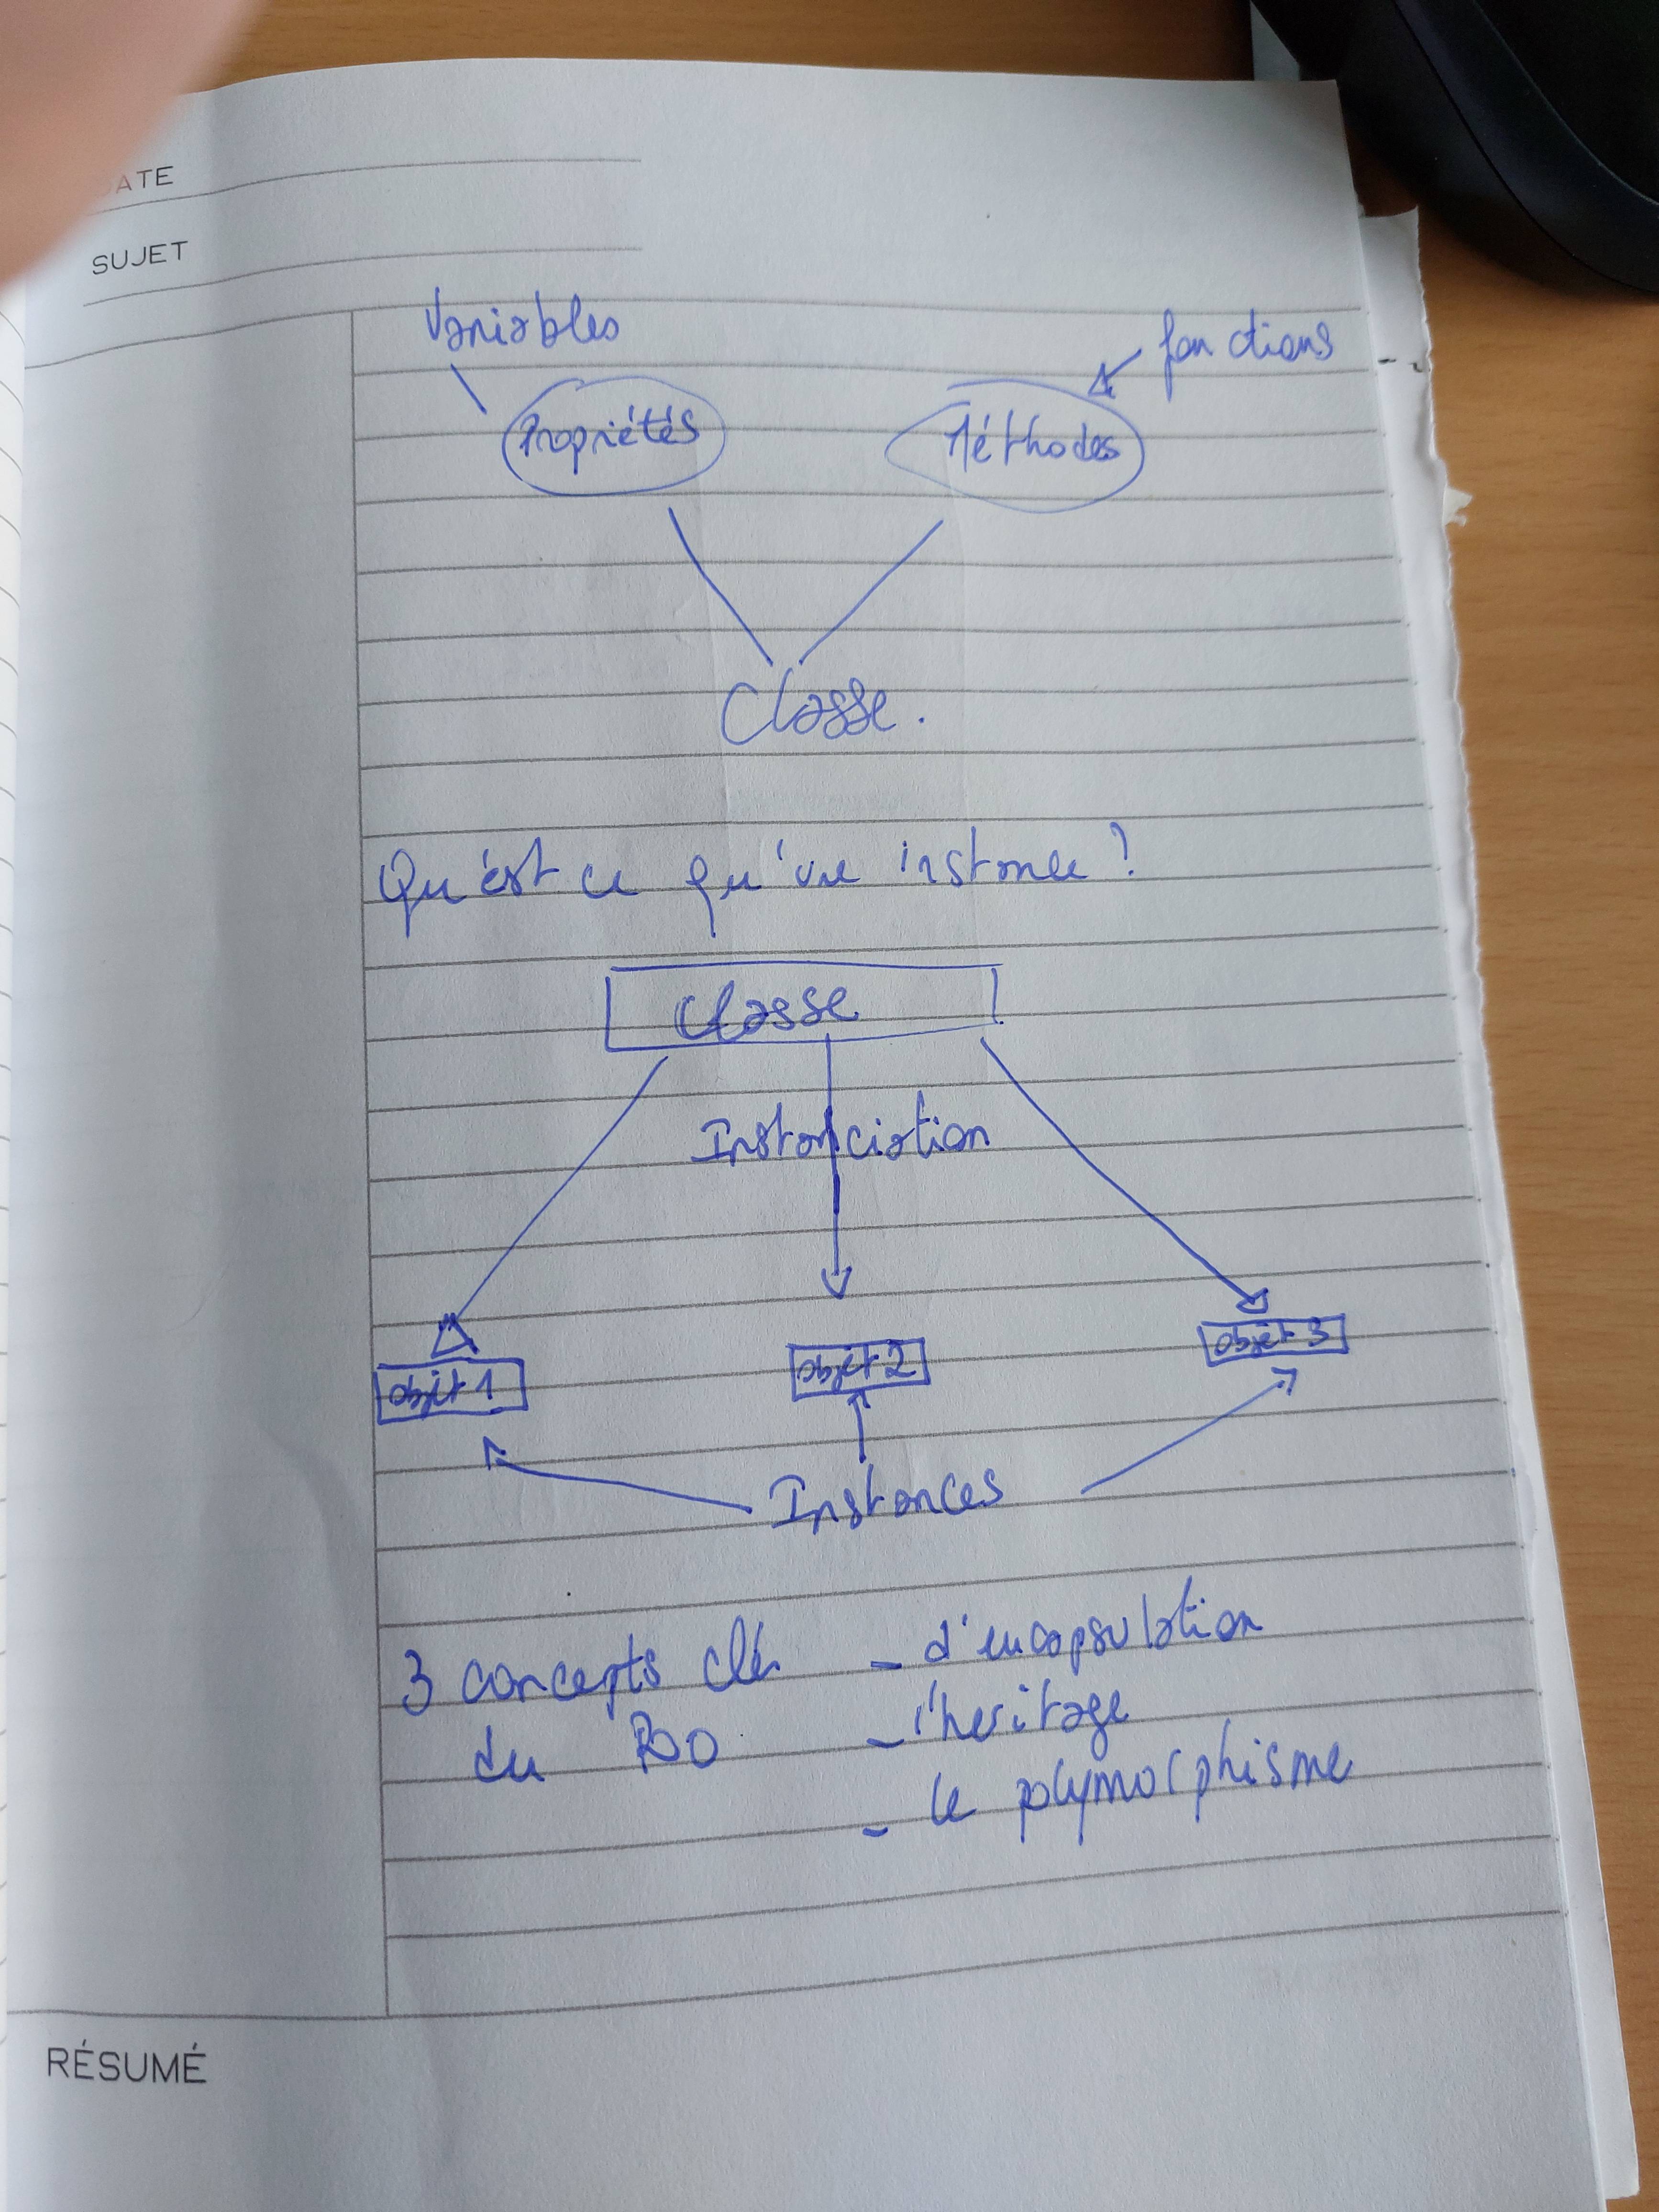 ATE
SUJET
Variables
fonctions
Propriétés
Méthodes
Classe.
Qu'est ce qu'une instance ?
Classe
Instanciation
objet 1
objet 2
objet 3
Instances
3 concepts clés - d'encapsulation
du POO - l'heritage
- le polymorphisme
RÉSUMÉ